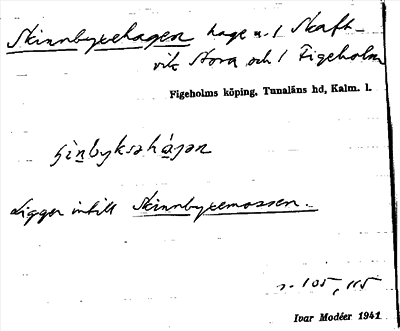 Skinnbyxehagen hage u. 1 Skaft-
vik Stora och 1 Figeholm
Figeholms köping, Tunaläns hd, Kalm. l.
ʃìnbyksəháɡən
Ligger intill Skinnbyxemossen.
s. 105, 115
Ivar Modéer 1941